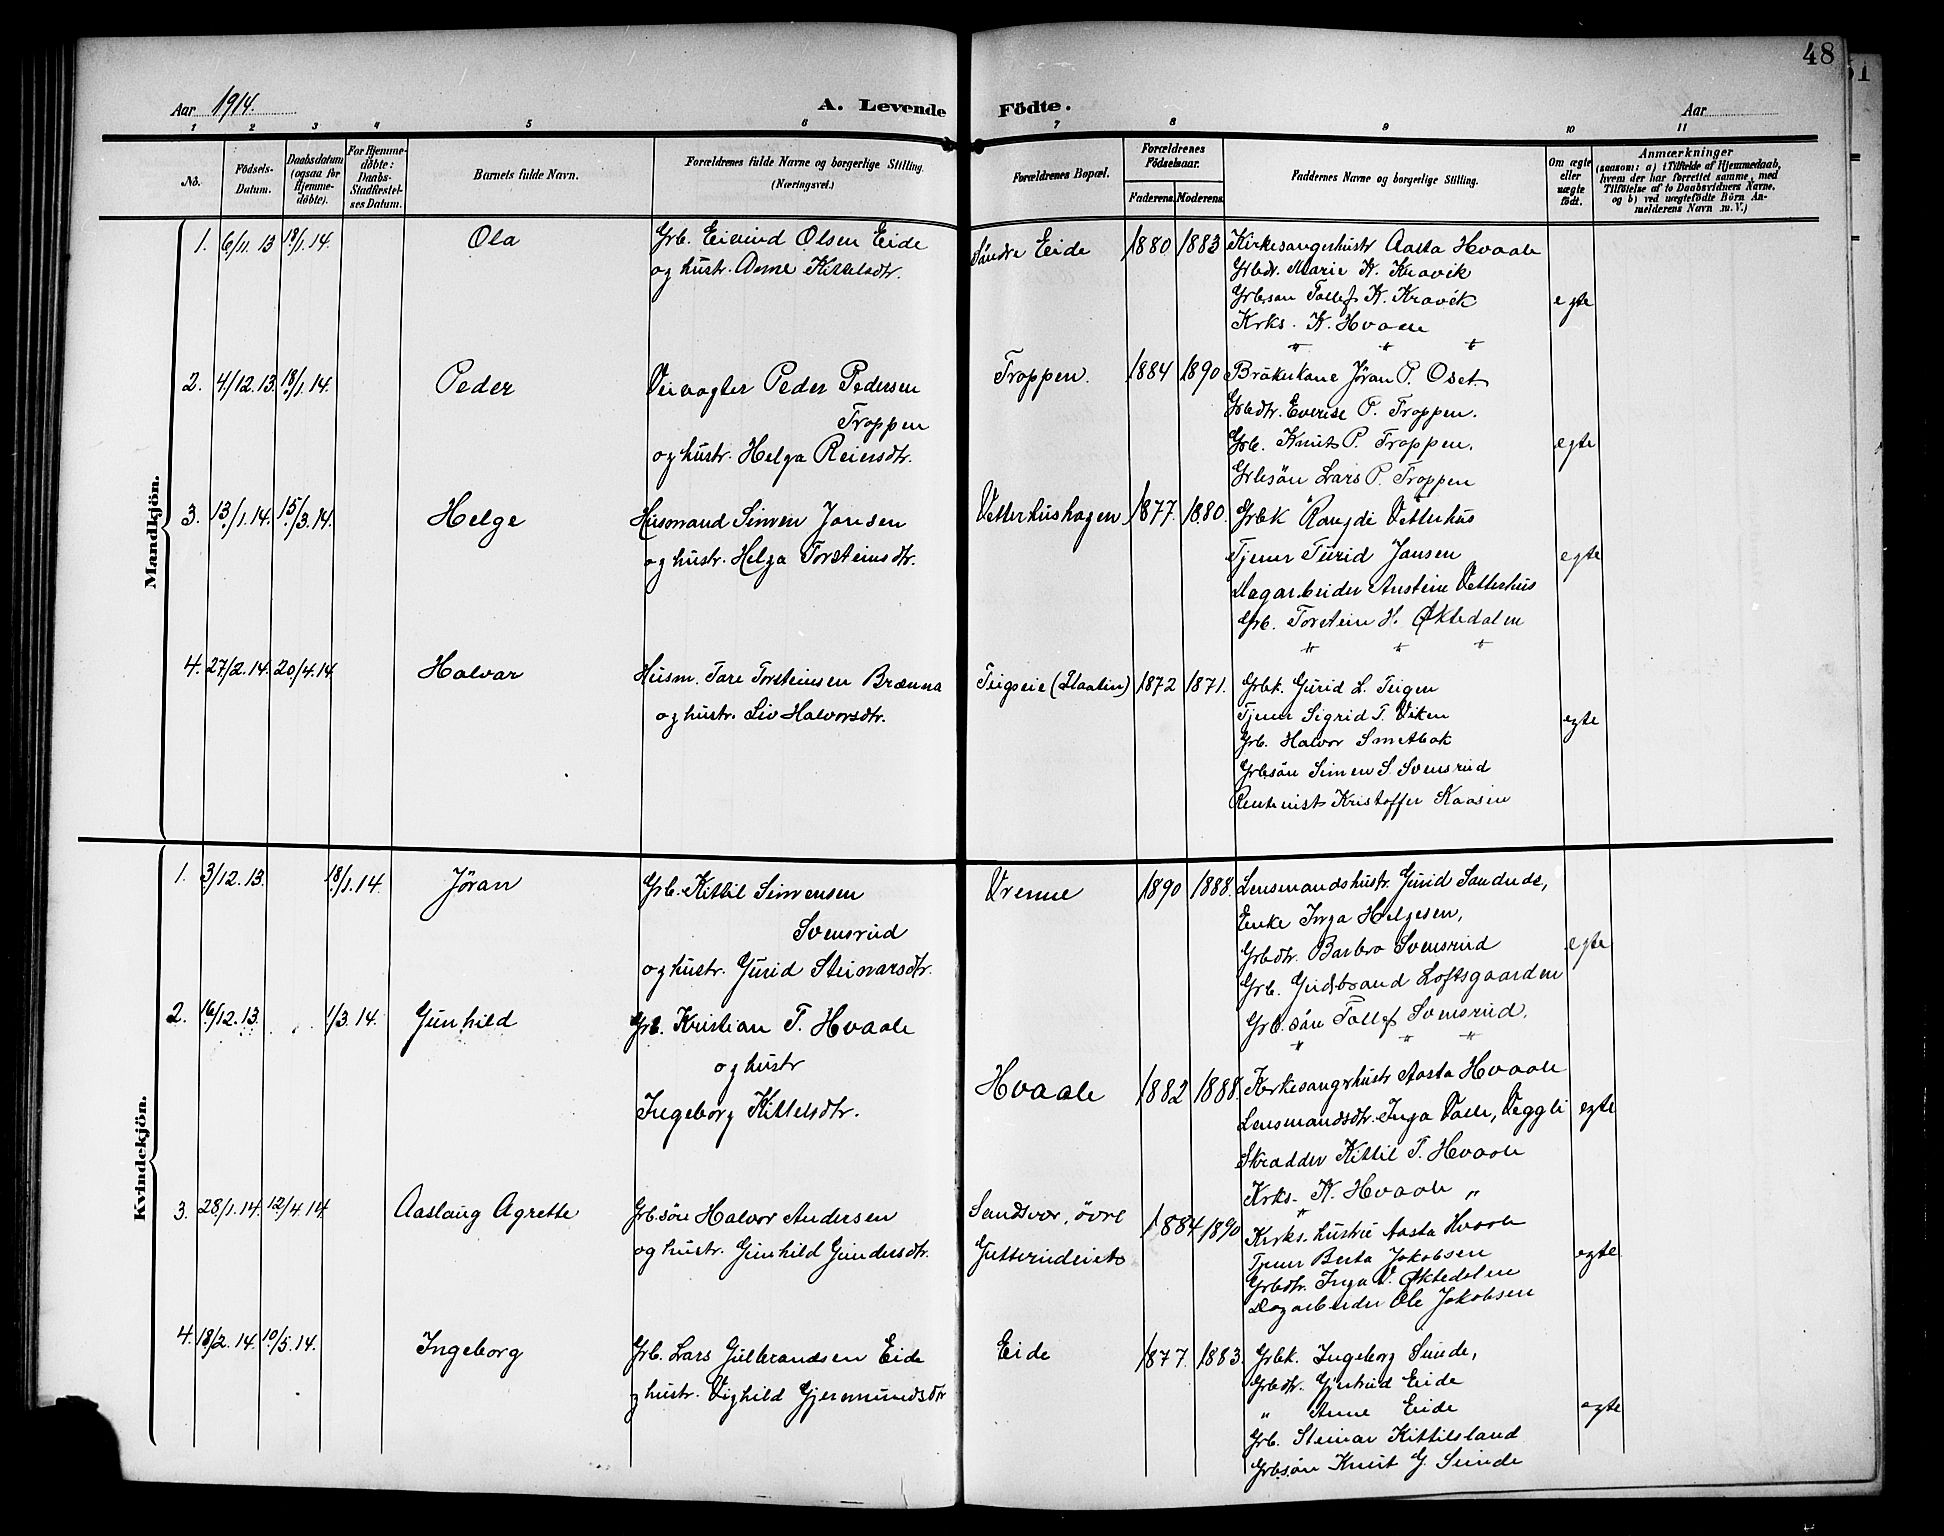 48
51
Aar 1914.
A. Levende Födte.
Aar
1 2 3 4 5 6 7 8 9 10 11
No.
Födsels-Datum.
Daabsdatum (ogsaa for Hjemme-döbte).
For Hjemme-döbte: Daabs-Stadfæstel-ses Datum.
Barnets fulde Navn.
Forældrenes fulde Navne og borgerlige Stilling.
(Næringsvei.)
Forældrenes Bopæl.
Forældrenes Födselsaar.
Faderens. Moderens.
Faddernes Navne og borgerlige Stilling.
Om ægte eller uægte födt.
Anmærkninger
(saasom: a) i Tilfælde af Hjemmedaab,
hvem der har forrettet samme, med
Tilföielse af to Daabsvidners Navne,
og b) ved uægtefödte Börn An-
melderens Navn m. V.)
Mandkjön.
1. 6/11. 13 18/1. 14. Ola
Grb. Eivind Olsen Eide
og hustr. Anne Kittelsdtr.
Søndre Eide 1880 1883
Kirkesangerhustr Aasta Hvaale
Grbdr. Marie K. Kravik
Grbsøn Tollef K. Kravik
Krks. K. Hvaale
egte
2. 4/12. 13. 18/1. 14. Peder
Veivogter Peder Pedersen
Troppen
og hustr. Helga Reiersdtr.
Troppen. 1884 1890
Brukerkone Jøran P. Oset
Grbdtr. P. Troppen.
Grb. Knut P. Troppen.
Grbsøn Lars P. Troppen
egte
3. 13/1. 14. 15/3. 14. Helge
Husmand Simen Jansen
og hustr. Helga Torsteinsdtr.
Vetterhushagen 1877. 1880.
Grbk Rangdi Vetterhus
Tjener Turid Jansen
Dagarbeider Anstein Vetterhus
Grb. Torstein H. Øktedalen
" " "
egte
4. 27/2. 14. 20/4. 14 Halvar
Husm. Tore Torsteinsen Brænna
og hustr. Liv Halvorsdtr.
Teigseie (Flaatin) 1872 1871.
Grbk. Gurid L. Teigen
Tjener Sigrid T. Viken
Grb. Halvor Smetbak
Grbsøn Simen S. Svensrud
Rentenist Kristoffer Kaasin
egte
Kvindekjön.
1. 3/12. 13. 18/1. 14. Jöran
Grb. Kittil Simensen
Svensrud
og hustr. Gurid Steinarsdtr.
Vrenne 1890 1888.
Lensmandshustr. Gurid Sandnes,
Enke Inga Helgesen,
Grbdtr. Barbro Svensrud
Grb. Gudbrand Loftsgaarden
Grb.søn Tollef Svensrud.
" " "
egte
2. 16/12. 13. 1/3. 14. Gunhild
Grb. Kristian T. Hvaale
og hustr
Ingeborg Kittelsdtr.
Hvaale 1882 1888.
Kirkesangerhustr Aasta Hvaale
Lensmandsdtr. Inga Valle, Veggli
Skrædder Kittil T. Hvaale
Krks. K. Hvaale "
egte
3. 28/1. 14. 12/4 14 Aaslaug Agrette
Grbsøn Halvor Andersen
og hustr. Gunhild Gundersdtr.
Sandsvær, øvre
1884 1890
Krks. hustru Aasta Hvaale
Tjener Berta Jakobsen
Grbdtr. Inga V. Øktedalen
Dagarbeider Ole Jakobsen
egte
4. 18/2. 14. 10/5. 14. Ingeborg
Grb. Lars Gulbrandsen Eide
og hustr. Vighild Gjermundsdtr
Eide 1877. 1883.
Grbk. Ingeborg Sunde,
Grbdtr. Gjertrud Eide
" Anne Eide
Grb. Steinar Kittilsland
Grbsøn Knut G. Sunde
egte